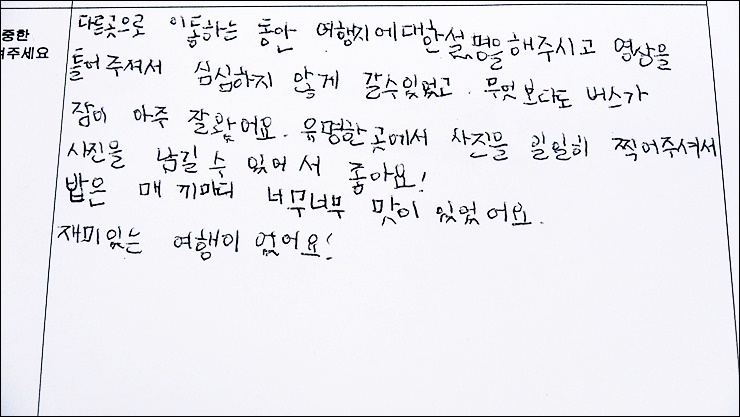 중한
려주세요
다른곳으로 이동하는 동안 여행지에대한설명을해주시고 영상을
틀어주셔서 심심하지 않게 갈수있었고. 무엇보다도 버스가
잠이 아주 잘왔어요. 유명한곳에서 사진을 일일히 찍어주셔서
사진을 남길 수 있어서 좋아요!
밥은 매 끼마다 너무너무 맛이 있었어요.
재미있는 여행이 었어요!